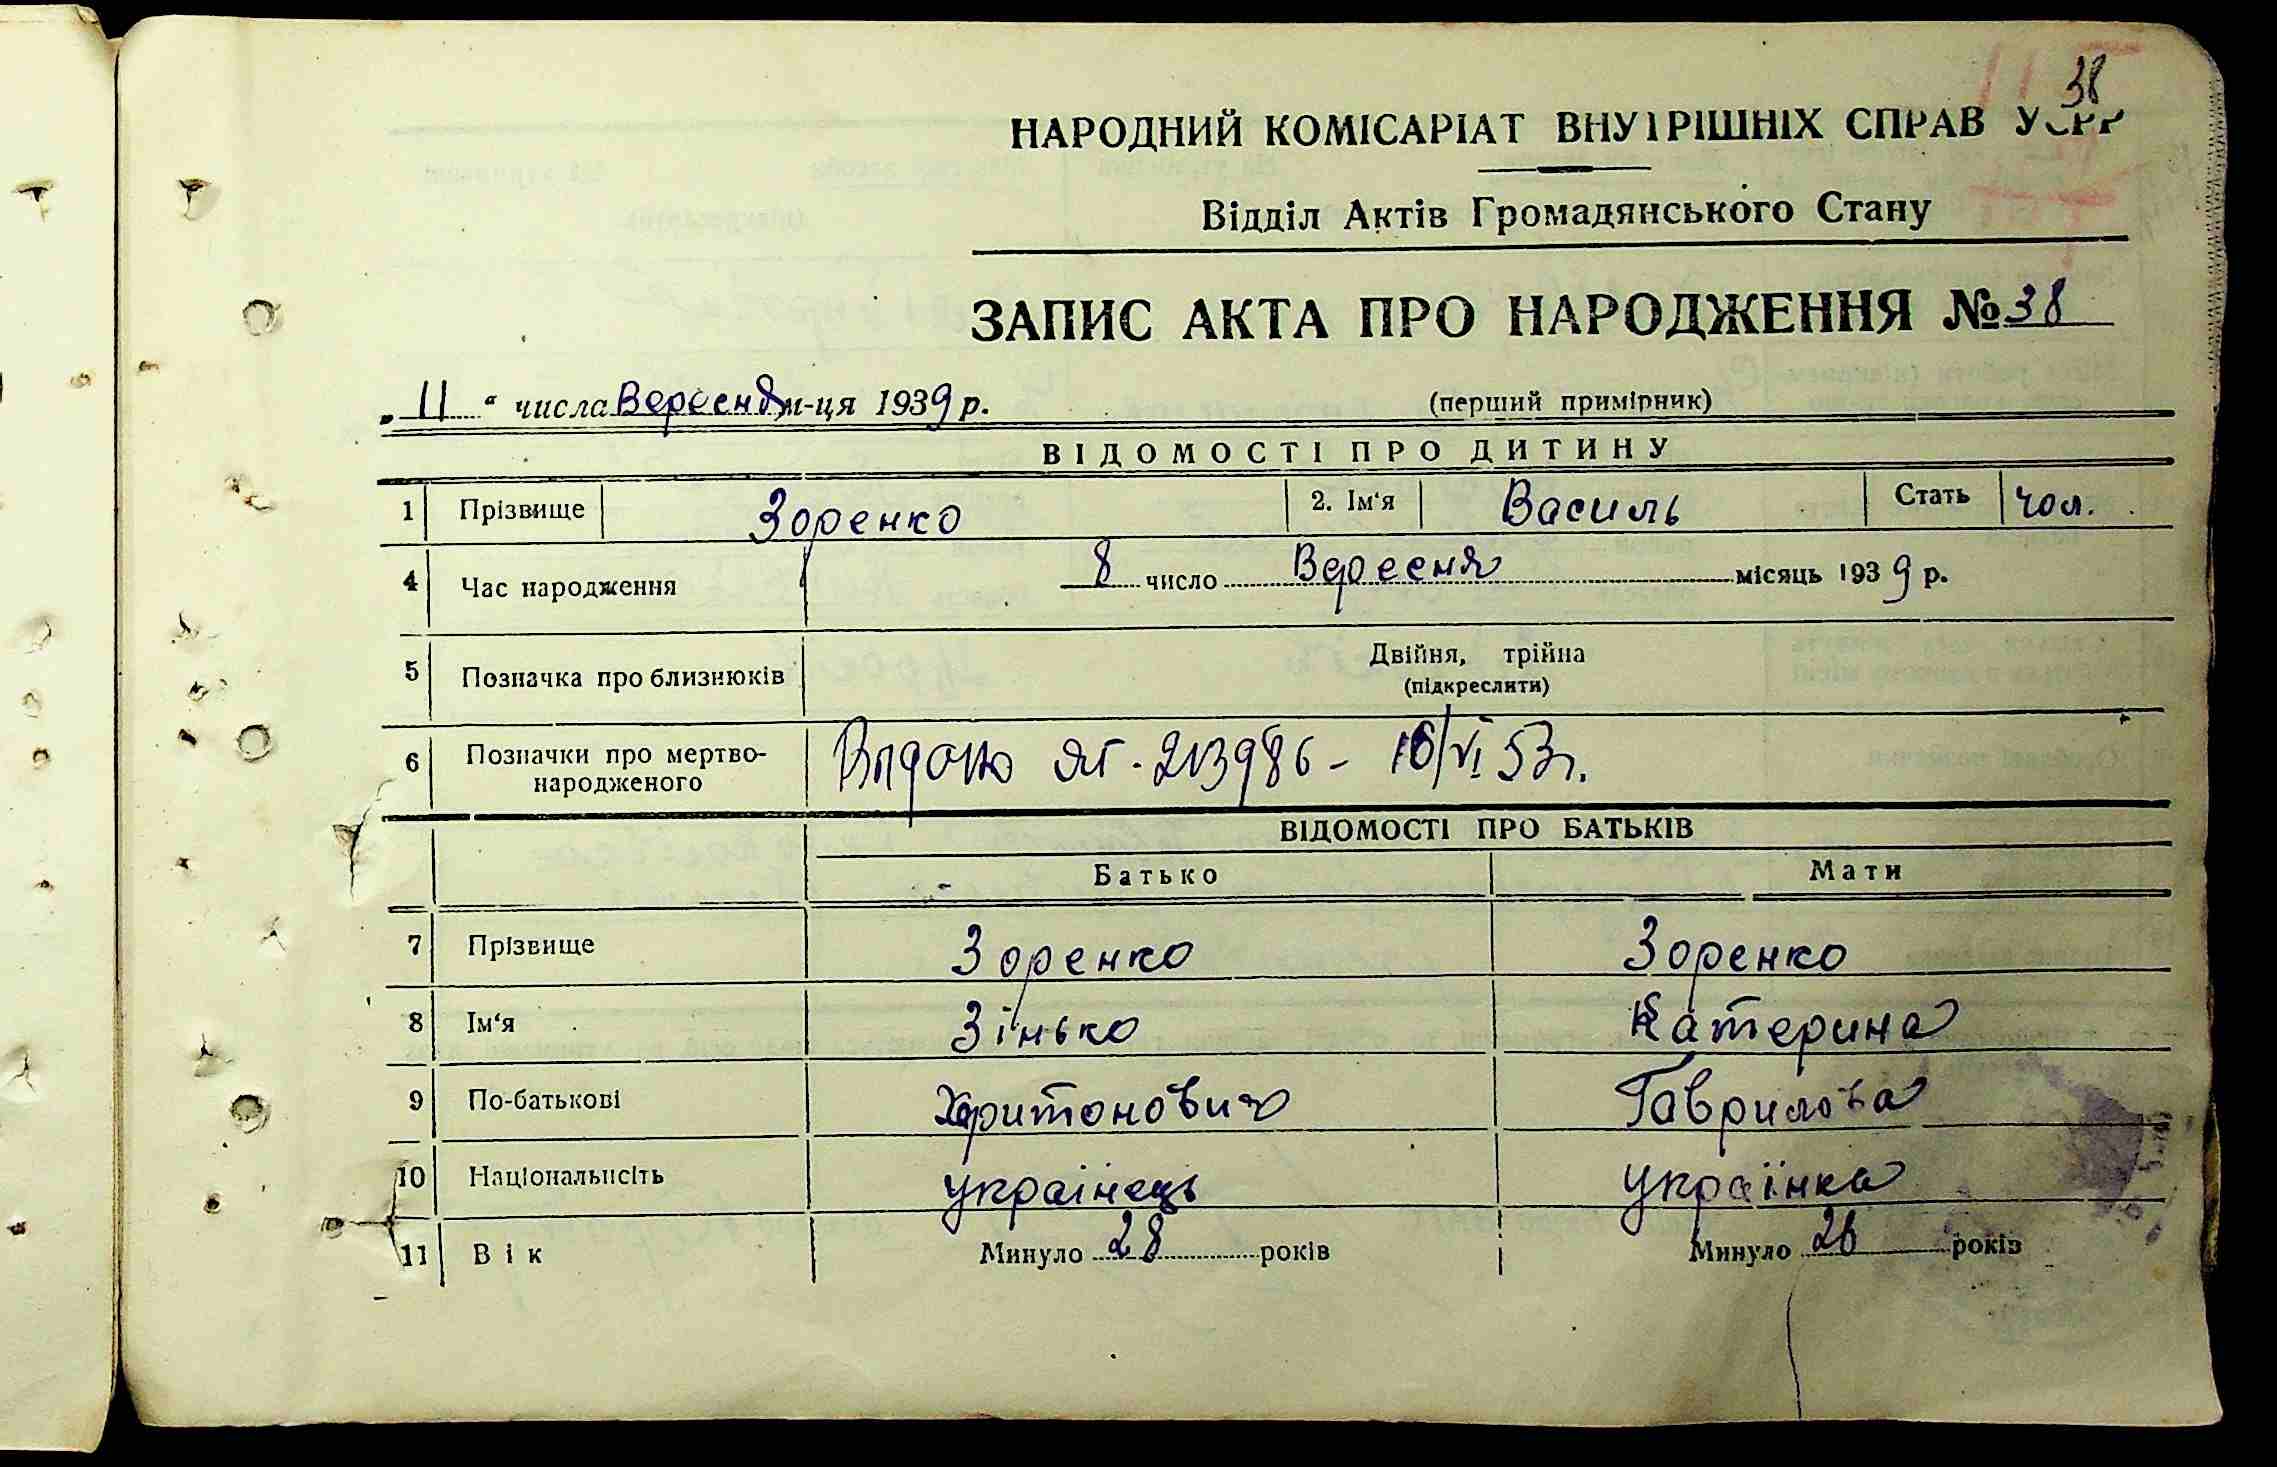 38
НАРОДНИЙ КОМІСАРІАТ ВНУТРІШНІХ СПРАВ УСРР
Відділ Актів Громадянського Стану
ЗАПИС АКТА ПРО НАРОДЖЕННЯ № 38
„ 11 “ числа Вересня м-ця 1939 р. (перший примірник)
ВІДОМОСТІ ПРО ДИТИНУ
1 Прізвище Зоренко 2. Ім‘я Василь Стать чол.
4 Час народження 8 число Вересня місяць 1939 р.
5 Позначка про близнюків Двійня, трійна
(підкреслити)
6 Позначки про мертво-народженого ЯГ - 213986 - 16/VI 53 г.
ВІДОМОСТІ ПРО БАТЬКІВ
Батько Мати
7 Прізвище Зоренко Зоренко
8 Ім‘я Зінько Катерина
9 По-батькові Харитонович Гаврилова
10 Національність українець українка
11 Вік Минуло 28 років Минуло 26 років